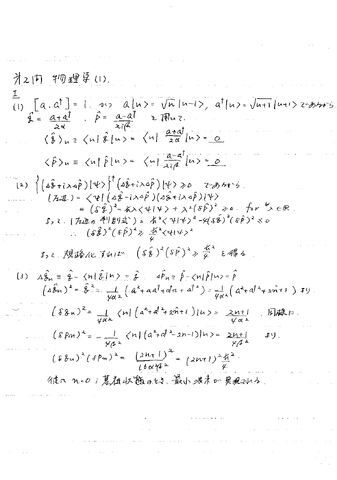 第2問 物理学(1).
I
(1) [a, a†] = 1. かつ a|n> = √n |n-1>, a†|n> = √n+1 |n+1> であるから
q̂ = a+a†/2α , p̂ = a-a†/2iβ を用いて.
<q̂>n ≡ <n|q̂|n> = <n| a+a†/2α |n> = 0
<p̂>n ≡ <n|p̂|n> = <n| a-a†/2iβ |n> = 0
(2) {(Δq̂+iλΔp̂)|ψ>}† (Δq̂+iλΔp̂)|ψ> ≥ 0 であるから.
(左辺) = <ψ|(Δq̂-iλΔp̂)(Δq̂+iλΔp̂)|ψ>
= (δq̂)² - ħλ<ψ|ψ> + λ²(δp̂)² ≥ 0. for ∀λ∈R
よって. (左辺の判別式) = ħ²<ψ|ψ>² - 4(δq̂)²(δp̂)² ≤ 0
∴ (δq̂)²(δp̂)² ≥ ħ²/4 <ψ|ψ>²
よって 規格化すれば (δq̂)²(δp̂)² ≥ ħ²/4 を得る
(3) Δq̂n ≡ q̂ - <n|q̂|n> = q̂ Δp̂n = p̂ - <n|p̂|n> = p̂
(Δq̂n)² = q̂² = 1/4α² (a²+aa†+a†a+a†²) = 1/4α² (a²+a†²+2n+1) より
(δqn)² = 1/4α² <n|(a²+a†²+2n+1)|n> = 2n+1/4α² . 同様に
(δpn)² = -1/4β² <n|(a²+a†²-2n-1)|n> = 2n+1/4β² より
(δqn)²(δpn)² = (2n+1)²/16α²β² = (2n+1)² ħ²/4
従って n=0 : 基底状態のとき. 最小波束が実現される.